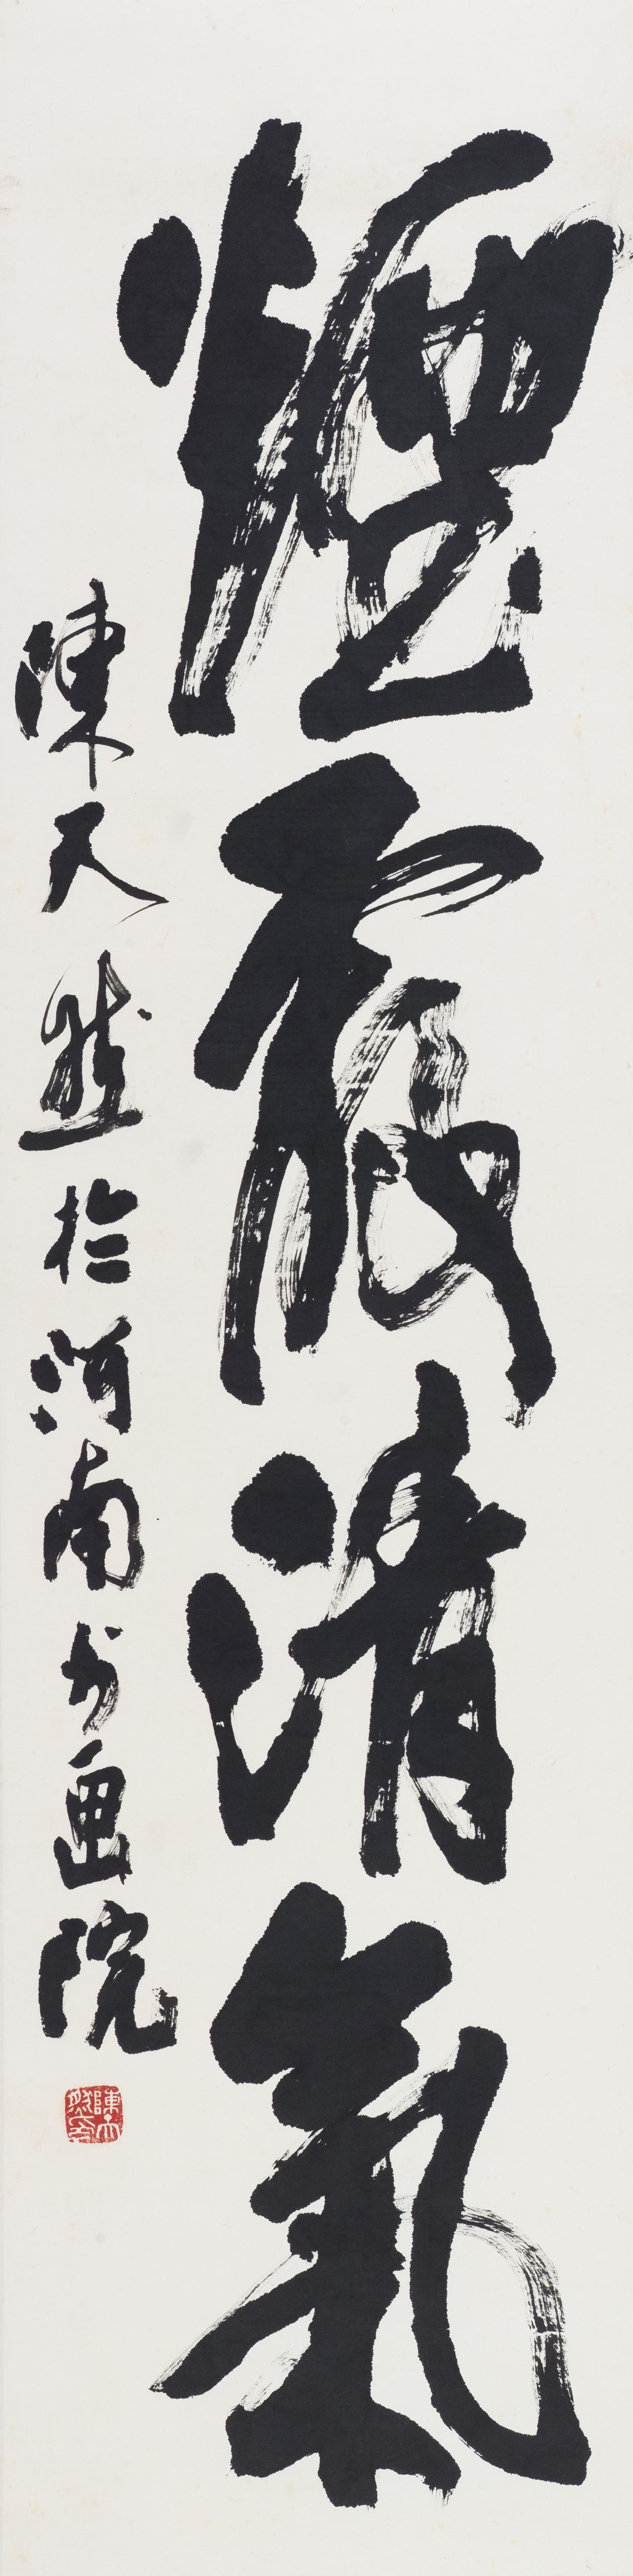 煙霞清氣
陳天然於河南书画院
陳天然印